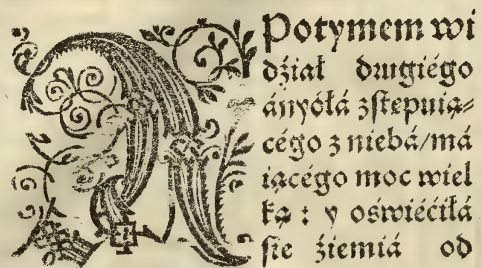 A Potymem wi
dźiał drugiégo
ányółá zstepuią⸗
cégo z niebá/má
iącégo moc wiel
ką : y oświéćiłá
sie źiemiá od